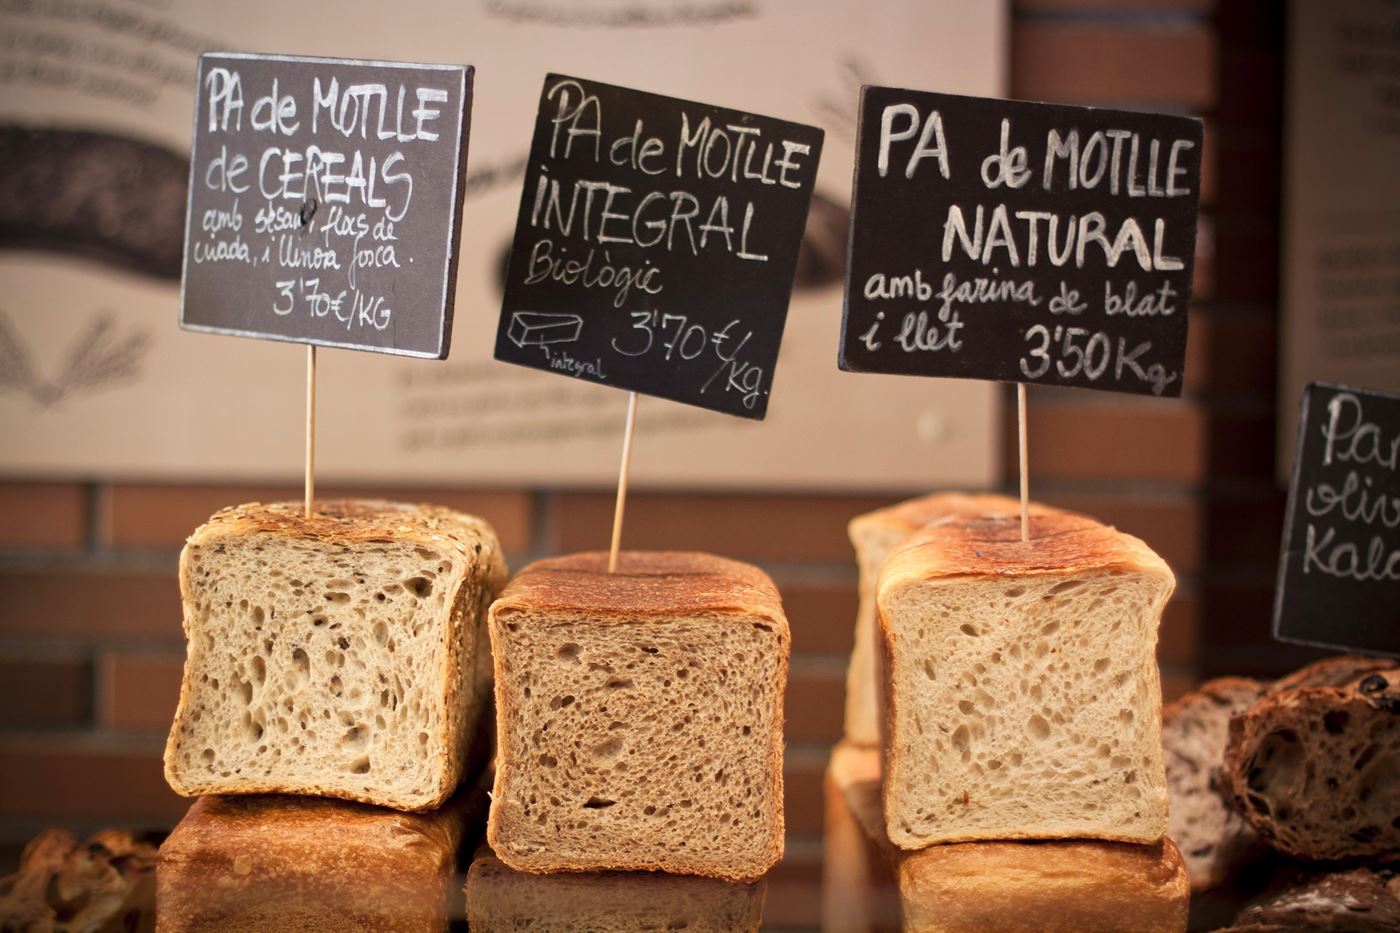 PA de MOTLLE
de CEREALS
amb sèsam, flocs de
civada, i llinosa fosca.
3'70€/KG
PA de MOTLLE
iNTEGRAL
Biològic
integral
3'70€/Kg.
PA de MOTLLE
NATURAL
amb farina de blat
i llet 3'50Kg
Pa
oliv
Kala